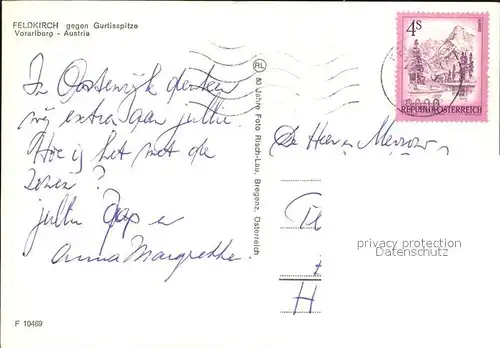 FELDKIRCH gegen Gurtisspitze
Vorarlberg - Austria
In Oostenrijk denken
wij extra aan jullie.
Hoe is het met de
jullie Jaap en
Anna Margrethe.
F 10469
80 Jahre Foto Risch-Lau, Bregenz, Österreich
RL
4S
REPUBLIK ÖSTERREICH
De Heer en Mevrouw
Te
H
privacy protection
Datenschutz